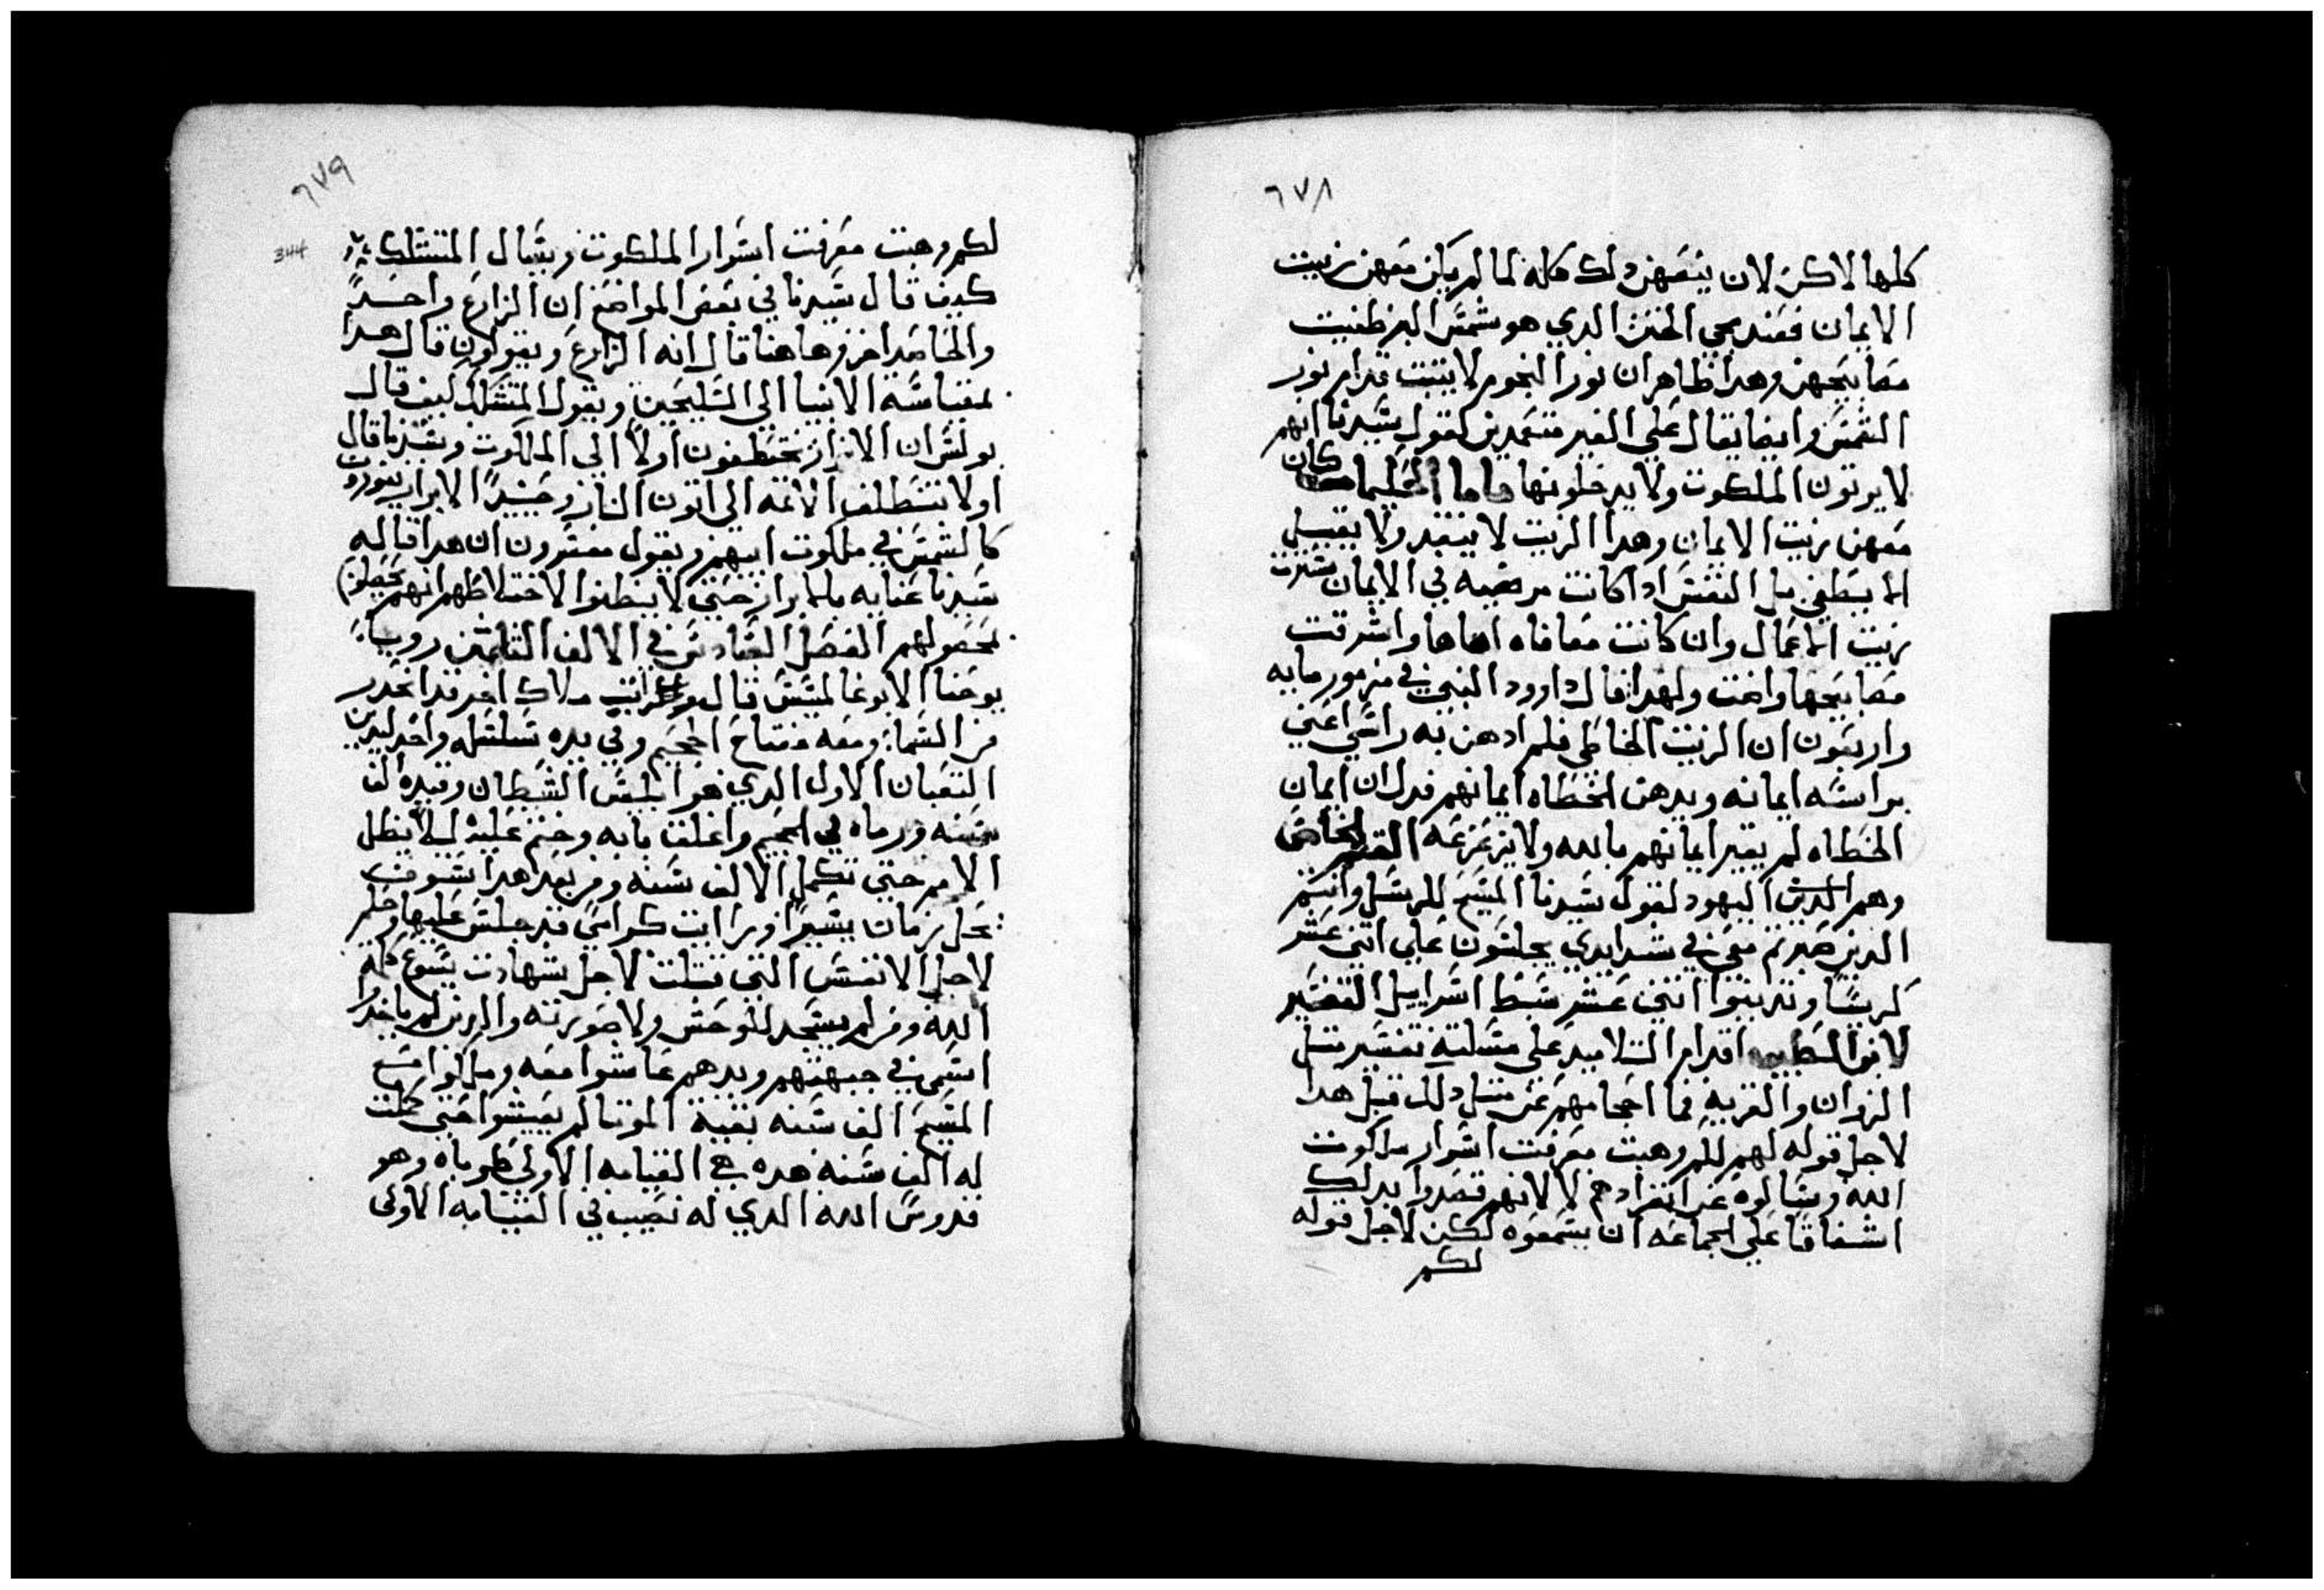 ٦٧٨
كلها لاكن لان ينقصهن دلك كله لما لم يكن معهن زيت
الايمان فعند مجي الختن الدي هو شمس البر طفيت
مصابيحهن وهدا ظاهر ان نور النجوم لا يتبت قدام نور
الشمس وايضا يقال علي الغير متعمدين كقول سيدنا انهم
لا يرتون الملكوت ولا يدخلونها فاما الحكيمات كان
معهن زيت الايمان وهدا الزيت لا ينفد ولا يقبل
الا يسطفي بل النفس ادا كانت مريضه في الايمان
زيت الاعمال وان كانت معافاه اهاها واشرقت
مصابيحها واخت ولهدا قال داوود النبي في مزمور مايه
واربعون ان الزيت الخاطي فلم ادهن به راسي اعني
براسه ايمانه ويدهن الخطاه ايمانهم فدل ان ايمان
الخطاه لم يغير ايمانهم بالله ولا يزعزعه الخاص
وهم الدين اليهود لقول سيدنا المسيح للرسل وانتم
الدين صبرتم معي في شدايدي يجلسون علي اتني عشر
كرسيا وتدينوا اتني عشر سبط اسراييل التفسير
لانوا اقدام التلاميد علي مسلته تفسير متل
الزوان والقريه فما احجامهم عن متل دلك قبل هدا
لاجل قوله لهم لكم وهبت معرفت اسرار ملكوت
الله وسالوه عن انفرادهم لا لانهم قصدوا بدلك
اشفاقا علي الجماعه ان يسمعوه لكن لاجل قوله
لكم
٦٧٩
344
لكم وهبت معرفت اسرار الملكوت ويسال المتشكك
كيف قال سيدنا في بعض المواضع ان الزارع واحدا
والحاصد اخر وهاهنا قال انه الزارع ويقولون قال هدا
بمقياسة الانبيا الي السليحين ويقول المتشكك كيف قال
بولس ان الابرار يختطفون اولا الي الملكوت وسيدنا قال
اولا الاتمه الي اتون النار وحينيد الابرار ينورون
كالشمس في ملكوت ابيهم ويقول مفسرون ان هدا قاله
سيدنا عنايه بالابرار حتي لا يبطلوا لاختلاطهم انهم
بحصولهم الفصل السادس في الالف التامن رويا
يوحنا الابوغالمسس قال ورايت ملاك اخر قد انحدر
من السما ومعه مفتاح الجحيم وفي يده سلسله واخد لدين
التعبان الاول الدي هو ابليس الشيطان وقيده الف
سنه ورماه في الجحيم واغلق بابه وختم عليه ليلا يظل
الامم حتي تكمل الالف سنه ومن بعد هدا سوف
يحل زمان يسيرا ورايت كراسي قد جلس عليها وحكم
لاجل الانفس التي قتلت لاجل شهادت يسوع كلمة
الله ومن لم يسجد للوحش ولا صورته والدين لم ياخدوا
اسمي في جبهتهم ويدهم عاشوا معه وملكوا مع
المسيح الف سنه بقية الموتا لم يعيشوا حتي كملت
له الف سنه هده هي القيامه الاولي طوباه وهو
قدوس الله الدي له نصيب في القيامه الاولي